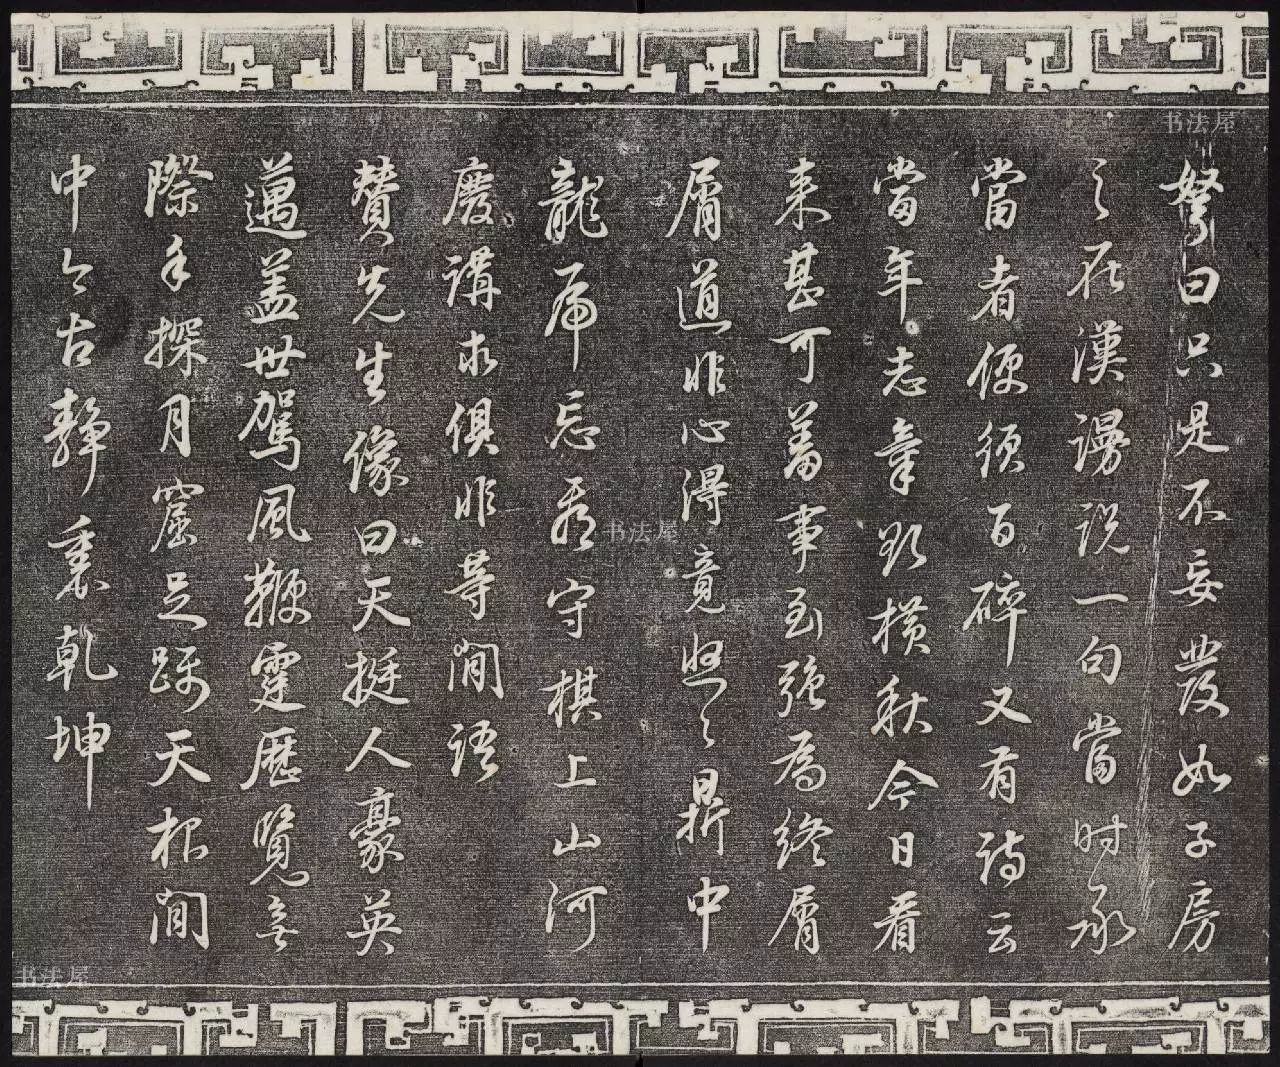 弩曰只是不妄發如子房
之在漢謾説一句當时承
當者便須百碎又有詩云
當年志氣欲橫秋今日看
来甚可羞事到强為終屑
屑道非心得竟悠々鼎中
龍虎忘看守棋上山河
廢講求俱非等閒語
贊先生像曰天挺人豪英
邁盖世駕風鞭霆歷覽無
際手探月窟足躡天根閒
中今古靜裏乾坤
书法屋
书法屋
书法屋